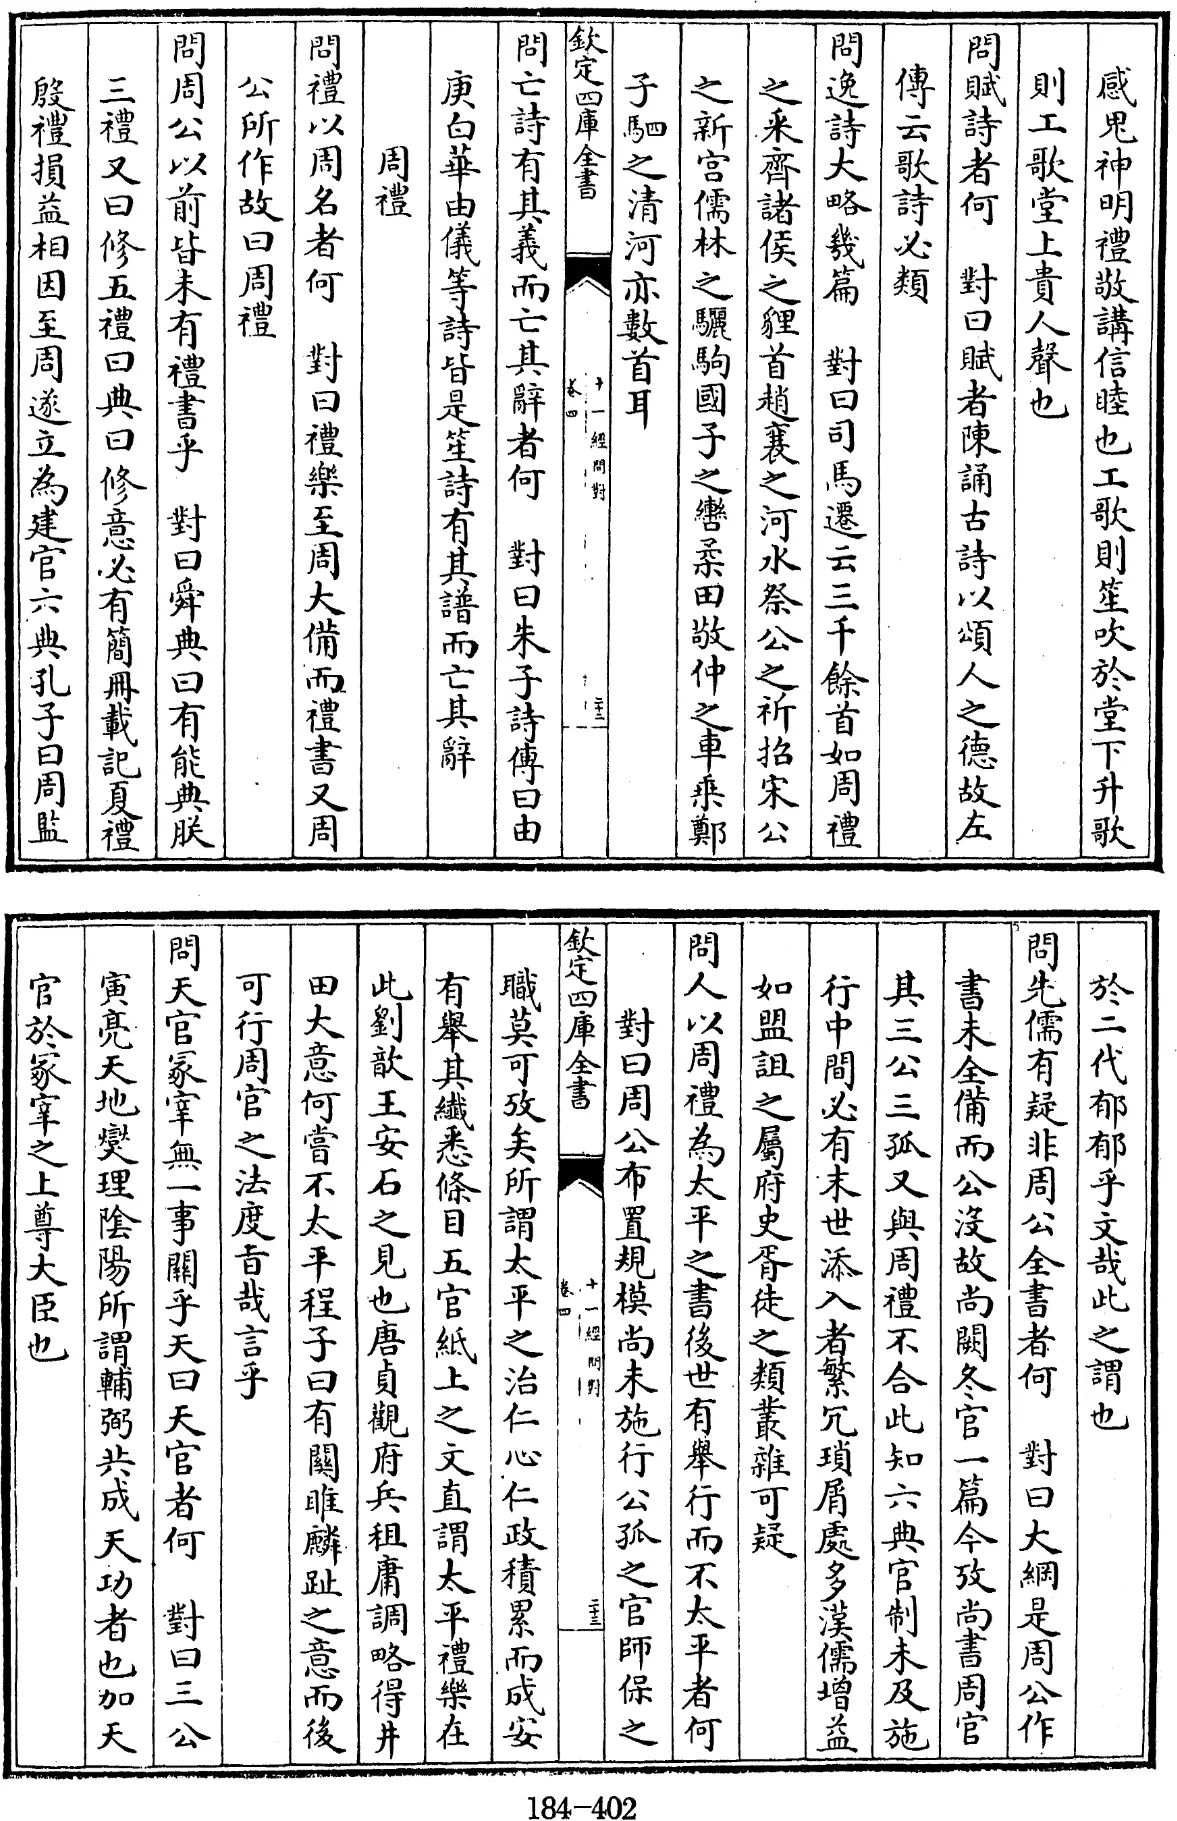 感鬼神明禮敬講信睦也工歌則笙吹於堂下升歌
則工歌堂上貴人聲也
問賦詩者何　對曰賦者陳誦古詩以頌人之德故左
傳云歌詩必類
問逸詩大略幾篇　對曰司馬遷云三千餘首如周禮
之采齊諸侯之貍首趙襄之河水祭公之祈招宋公
之新宫儒林之驪駒國子之轡柔田敬仲之車乘鄭
子駟之清河亦數首耳
欽定四庫全書
十一經問對
卷四
二十三
問亡詩有其義而亡其辭者何　對曰朱子詩傳曰由
庚白華由儀等詩皆是笙詩有其譜而亡其辭
周禮
問禮以周名者何　對曰禮樂至周大備而禮書又周
公所作故曰周禮
問周公以前皆未有禮書乎　對曰舜典曰有能典朕
三禮又曰修五禮曰典曰修意必有簡冊載記夏禮
殷禮損益相因至周遂立為建官六典孔子曰周監
於二代郁郁乎文哉此之謂也
問先儒有疑非周公全書者何　對曰大綱是周公作
書未全備而公沒故尚闕冬官一篇今攷尚書周官
其三公三孤又與周禮不合此知六典官制未及施
行中間必有末世添入者繁冗瑣屑處多漢儒增益
如盟詛之屬府史胥徒之類叢雜可疑
問人以周禮為太平之書後世有舉行而不太平者何
對曰周公布置規模尚未施行公孤之官師保之
欽定四庫全書
十一經問對
卷四
二十三
職莫可攷矣所謂太平之治仁心仁政積累而成安
有舉其纖悉條目五官紙上之文直謂太平禮樂在
此劉歆王安石之見也唐貞觀府兵租庸調略得井
田大意何嘗不太平程子曰有關雎麟趾之意而後
可行周官之法度旨哉言乎
問天官冢宰無一事關乎天曰天官者何　對曰三公
寅亮天地燮理陰陽所謂輔弼共成天功者也加天
官於冢宰之上尊大臣也
184-402